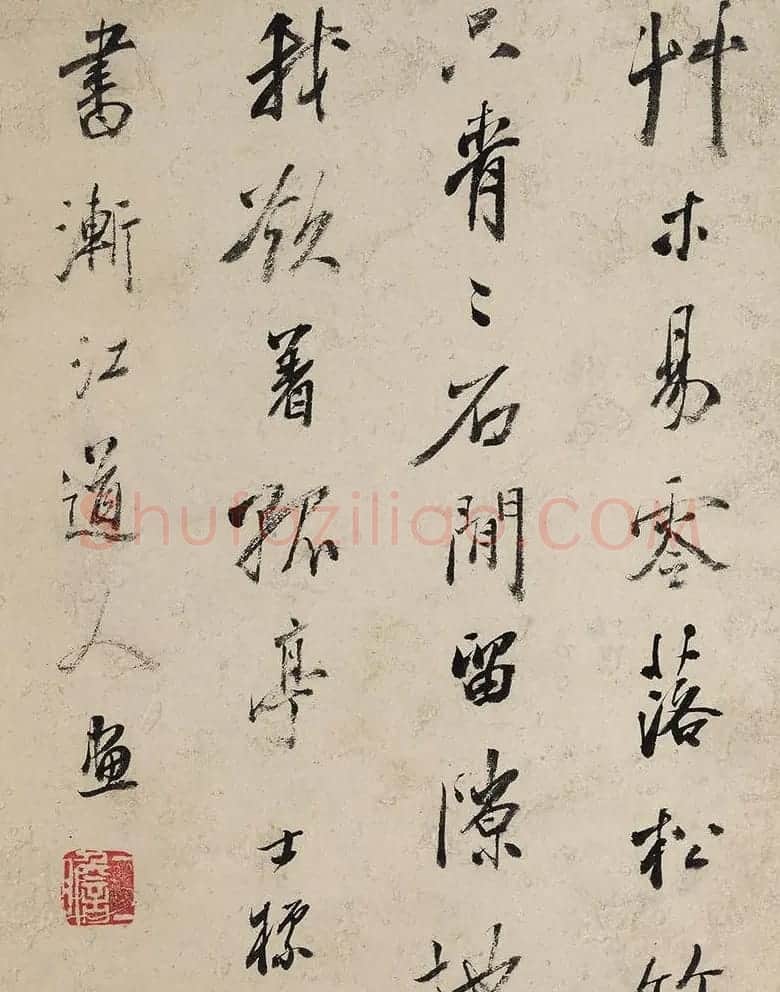 艸木易零落松竹
只青〻石間留隙地
我欲着孤亭士標
書漸江道人畫
shufaziliao.COM